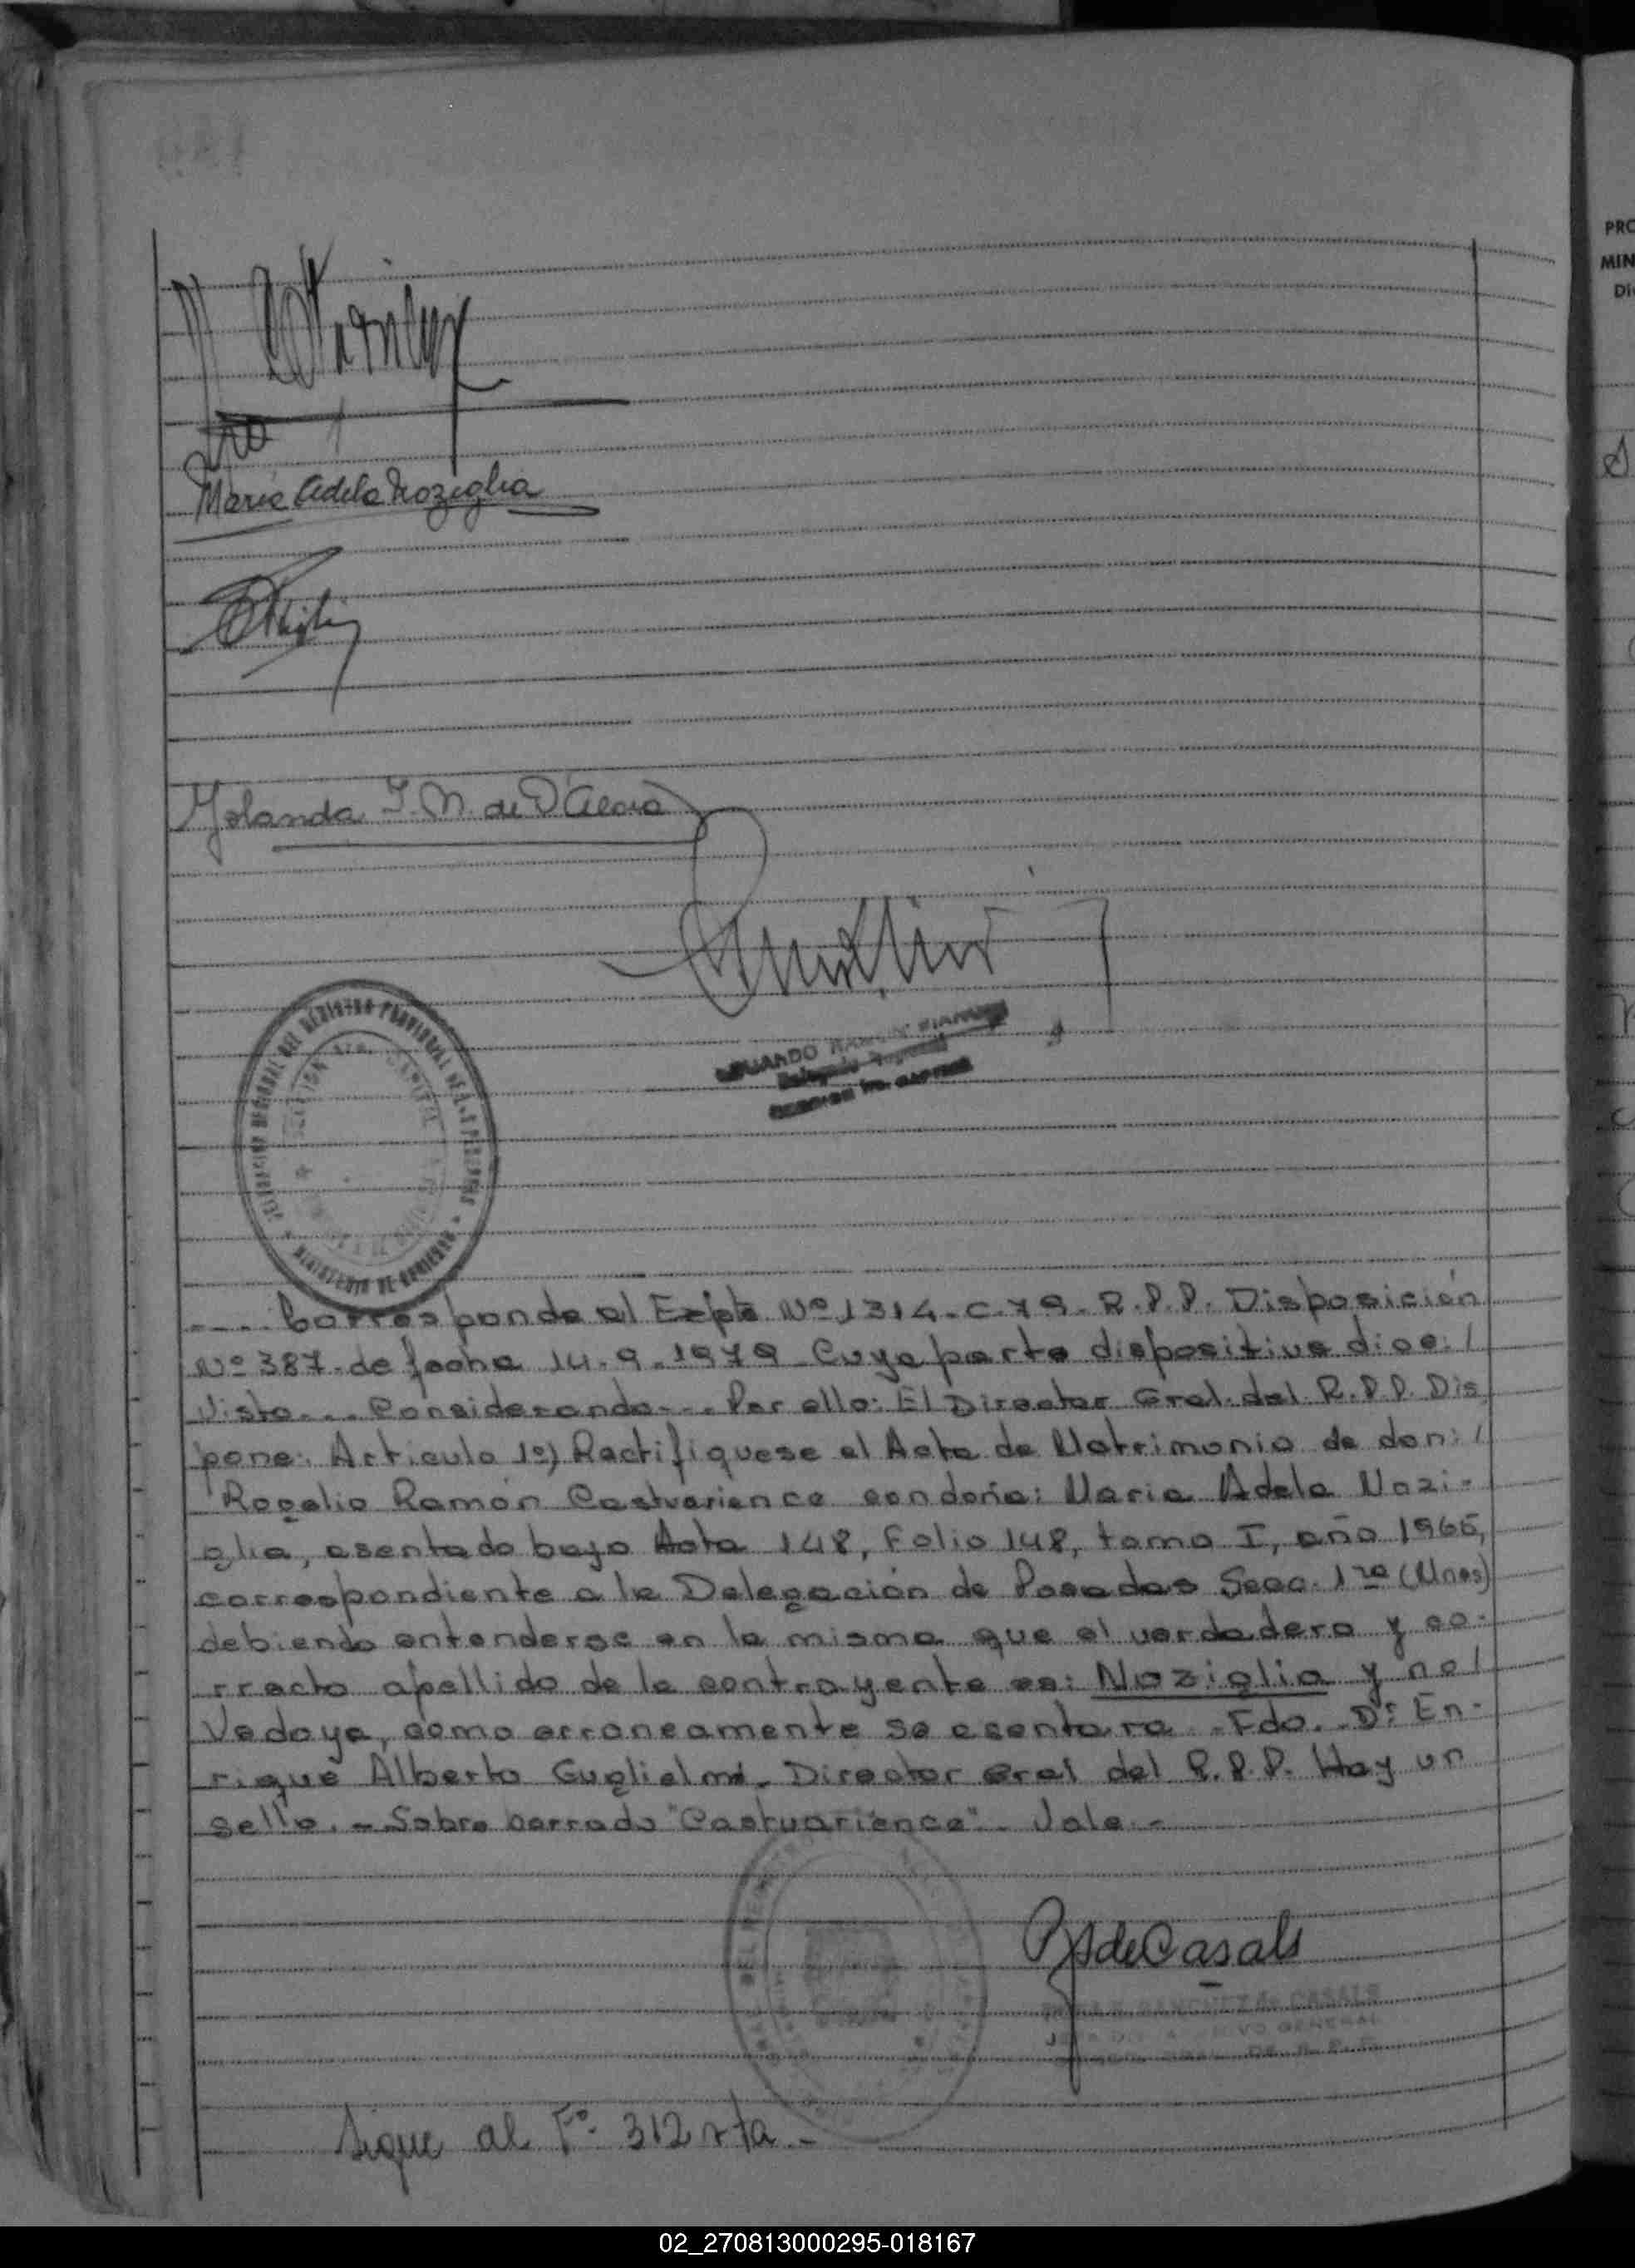 Maria Adela Noziglia
Yolanda I. M. de D'Alora
DELEGACION REGIONAL DEL REGISTRO PROVINCIAL DE LAS PERSONAS
MINISTERIO DE GOBIERNO
.... Corresponde al Expte Nº 1314-C-79-R.P.P. Disposición
Nº 387- de fecha 14-9-1979 Cuya parte dispositiva dice: /
Visto... Considerando... Por ello: El Director Gral. del R.P.P. Dis
pone: Articulo 1º) Rectifiquese el Acta de Matrimonio de don: /
Rogelio Ramón Castuarience con doña: Maria Adela Nozi-
glia, asentado bajo Acta 148, Folio 148, tomo I, año 1965,
correspondiente a la Delegación de Posadas Secc. 1ra (Mnes)
debiendo entenderse en la misma que el verdadero y co-
rrecto apellido de la contrayente es: Noziglia y no /
Vedoya, como erroneamente se asentara -Fdo. Dr En-
rique Alberto Guglielmi. Director Gral del R.P.P. Hay un
sello. - Sobre borrado "Castuarience". Vale. -
de Casals
SANCHEZ de CASALS
ARCHIVO GENERAL
Sigue al Fº 312 vta -
PRO
MIN
Di
02_270813000295-018167